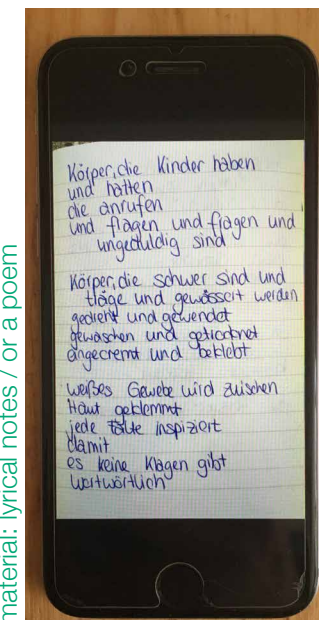 material: lyrical notes / or a poem
Körper, die Kinder haben
und hatten
die anrufen
und fragen und fragen und
ungeduldig sind
Körper, die schwer sind und
träge und gewässert werden
gedreht und gewendet
gewaschen und getrocknet
eingecremt und beklebt
weißes Gewebe wird zwischen
Haut geklemmt
jede Falte inspiziert
damit
es keine Klagen gibt
wortwörtlich